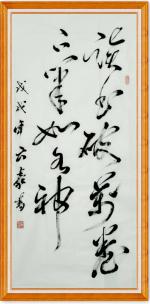 读书破万卷
下笔如有神
戊戌年云嘉书